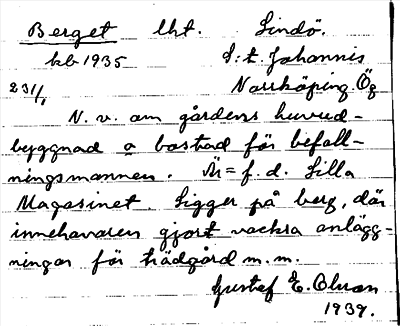 Berget lht. Lindö.
kb 1935 S:t Johannis
231/1 Norrköping Ög
N. v. om gårdens huvud-
byggnad o bostad för befall-
ningsmannen. Är = f. d. Lilla
Magasinet. Ligger på berg, där
innehavaren gjort vackra anlägg-
ningar för trädgård m. m.
Gustaf E. Olsson
1939.